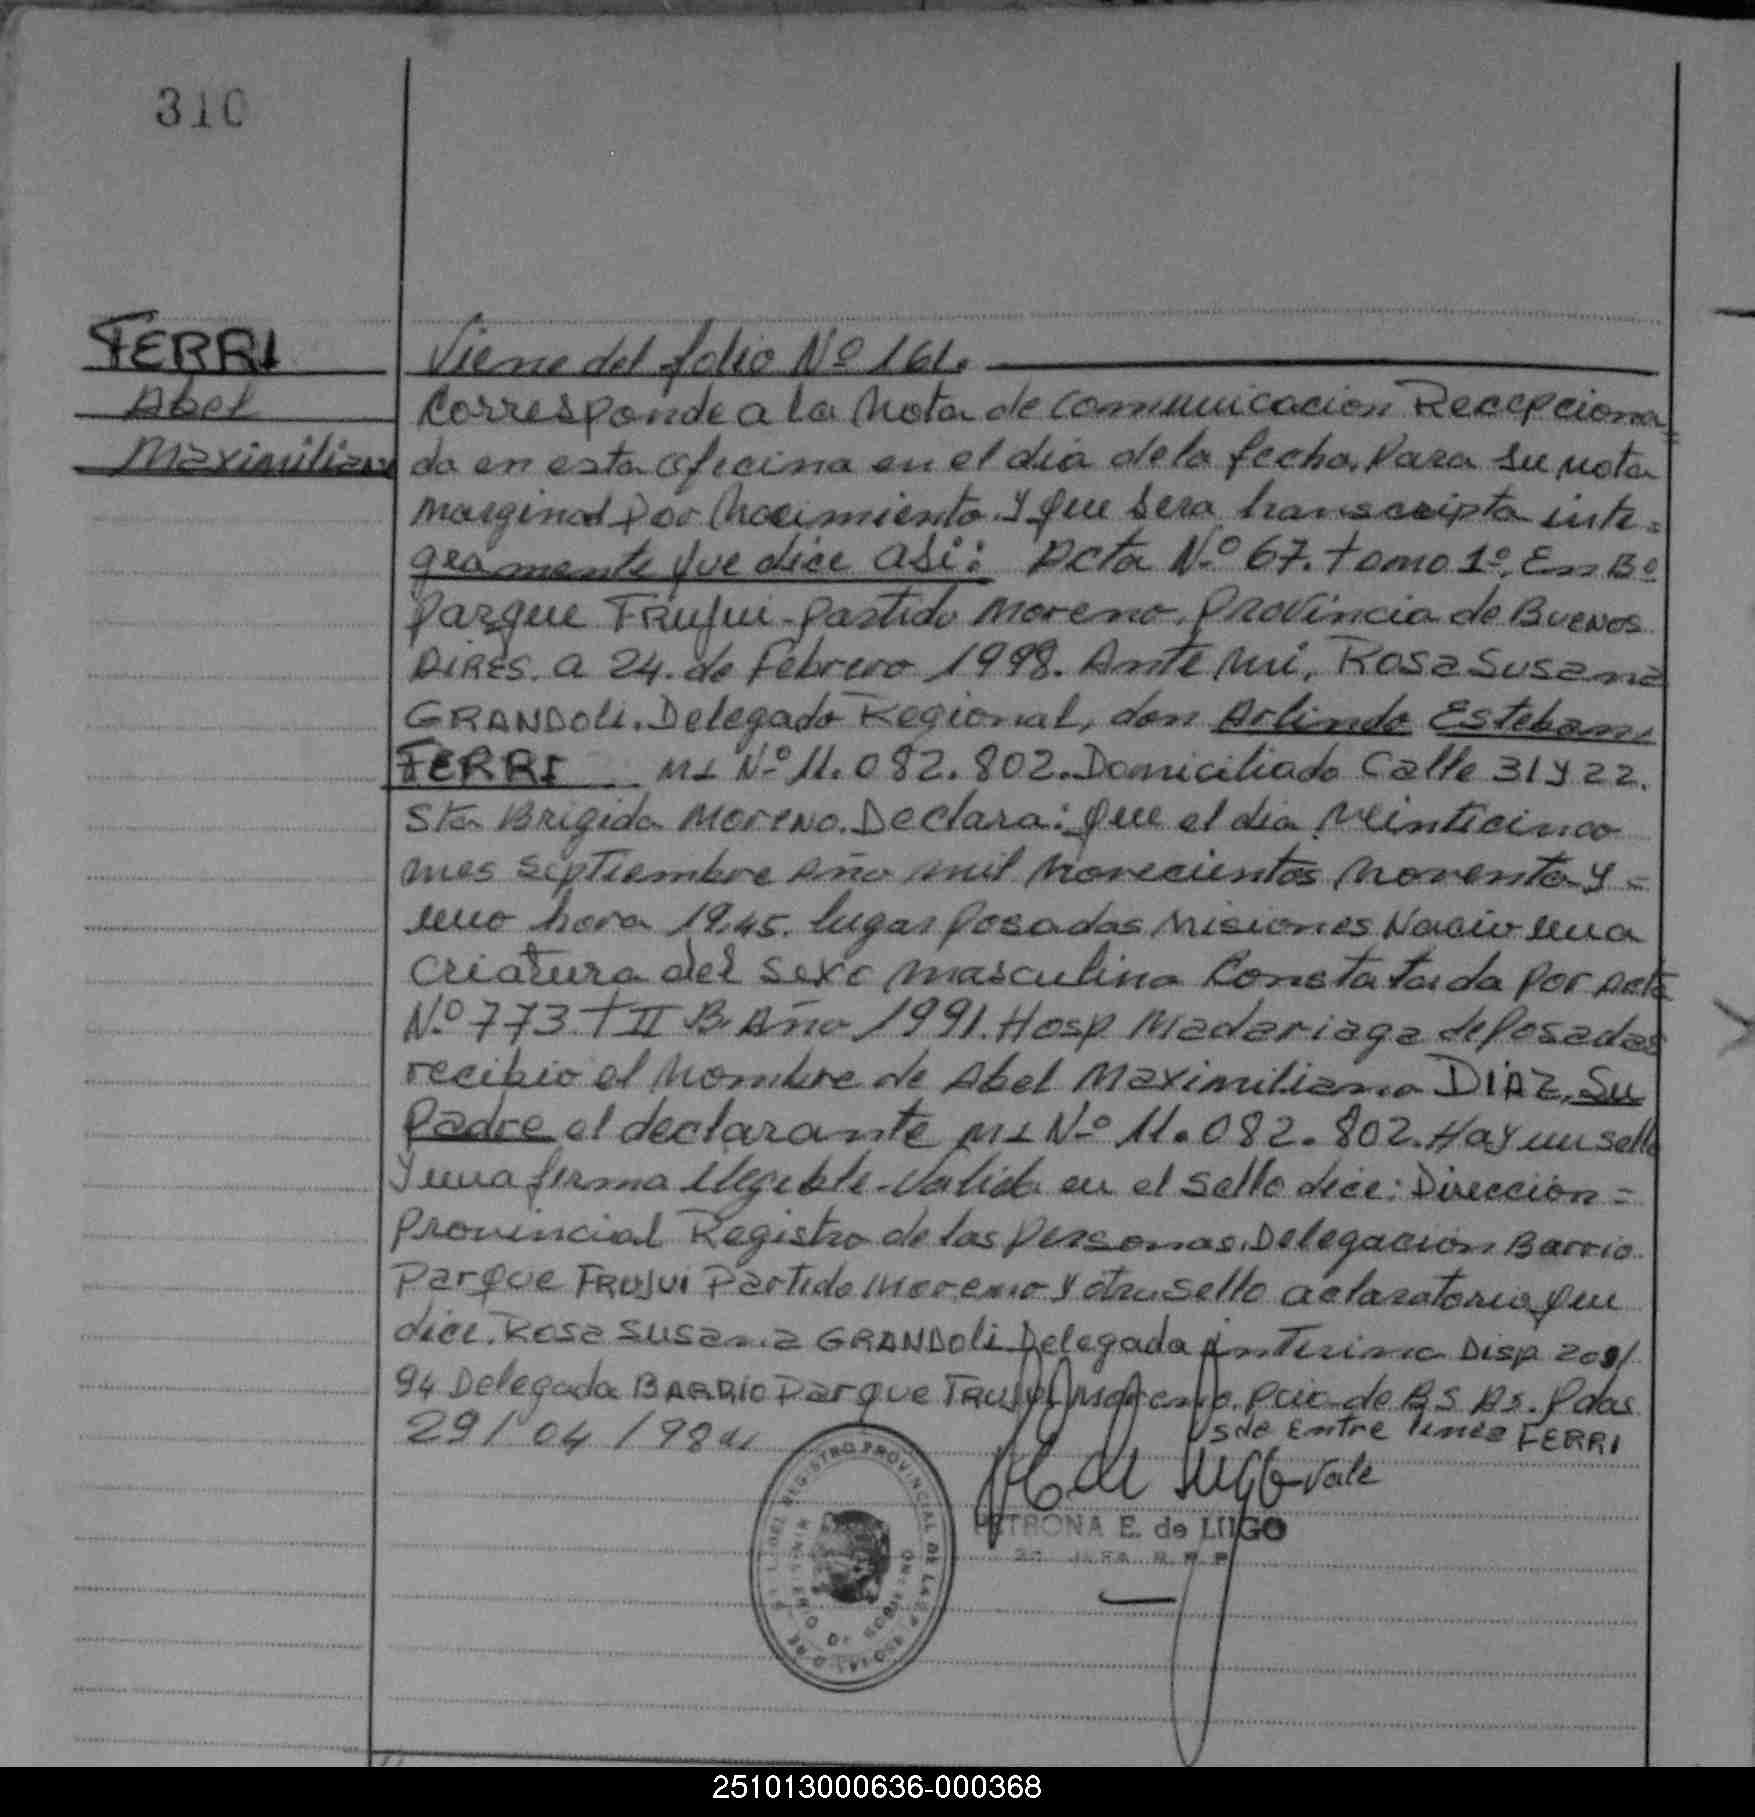 310
FERRI
Abel
Maximiliano
Viene del folio Nº 161.
Corresponde a la Nota de comunicacion Recepciona=
da en esta oficina en el dia de la fecha, Para su nota
marginal por Nacimiento. Y que sera transcripta inte=
gramente que dice asi: Acta Nº 67. tomo 1º. En Bº
Parque TRUJUI - Partido Moreno, Provincia de BUENOS
AIRES. a 24. de Febrero 1998. Ante mi, Rosa Susana
GRANDOLI. Delegado Regional, don Arlindo Esteban
FERRI MI Nº 11.082.802. Domiciliado Calle 31 y 22.
Sta Brigida MORENO. Declara: que el dia Veinticinco
mes septiembre Año mil Novecientos Noventa y =
uno hora 19.45. lugar Posadas Misiones Nacio una
criatura del sexo masculino Constatada por Acta
Nº 773 t II B. Año 1991. Hosp Madariaga de Posadas
recibio el Nombre de Abel Maximiliano DIAZ, Su
Padre el declarante MI Nº 11.082.802. Hay un sello
y una firma Ilegible - Valida en el sello dice: Direccion =
Provincial Registro de las Personas. Delegacion Barrio
Parque TRUJUI Partido Moreno y otro sello aclaratorio que
dice. Rosa Susana GRANDOLI Delegada interina Disp 209/
94 Delegada BARRIO Parque TRUJUI Moreno. Pcia de BS As. Pdas
29/04/98
sde Entre linea FERRI
Vale
PETRONA E. de LUGO
REGISTRO PROVINCIAL DE LAS PERSONAS
MINISTERIO DE GOBIERNO
251013000636-000368